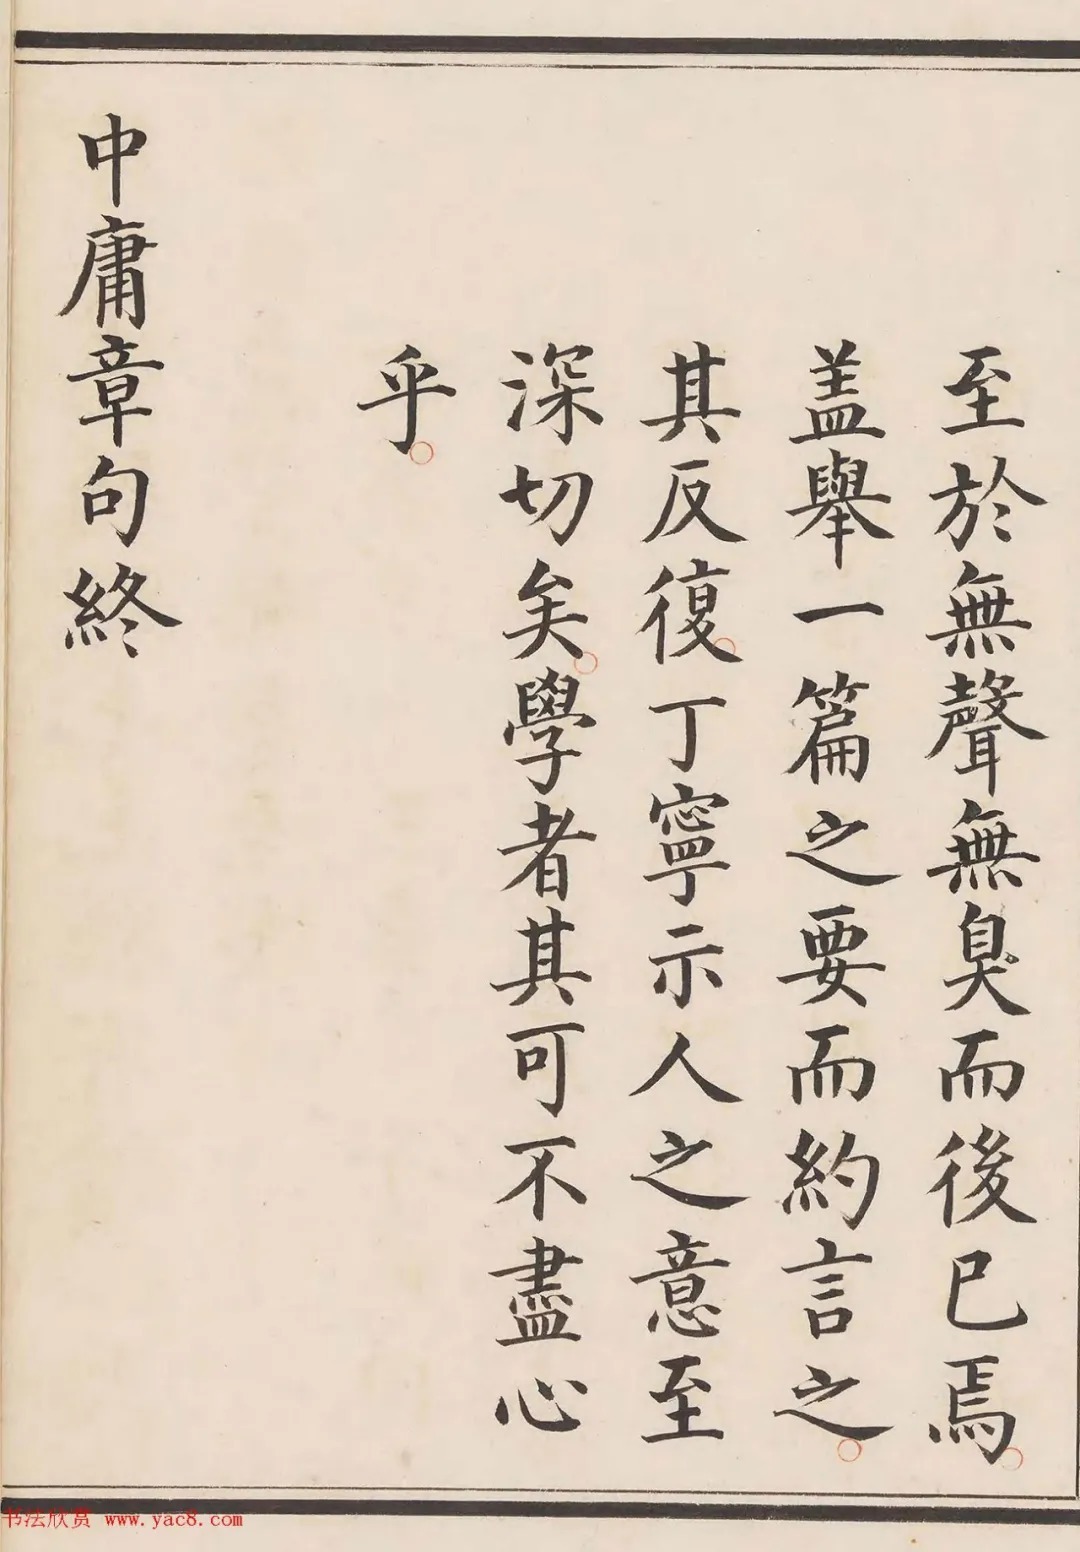 至於無聲無臭而後已焉。
盖舉一篇之要而約言之。
其反復。丁寧示人之意至
深切矣。學者其可不盡心
乎。
中庸章句終
书法欣赏 www.yac8.com